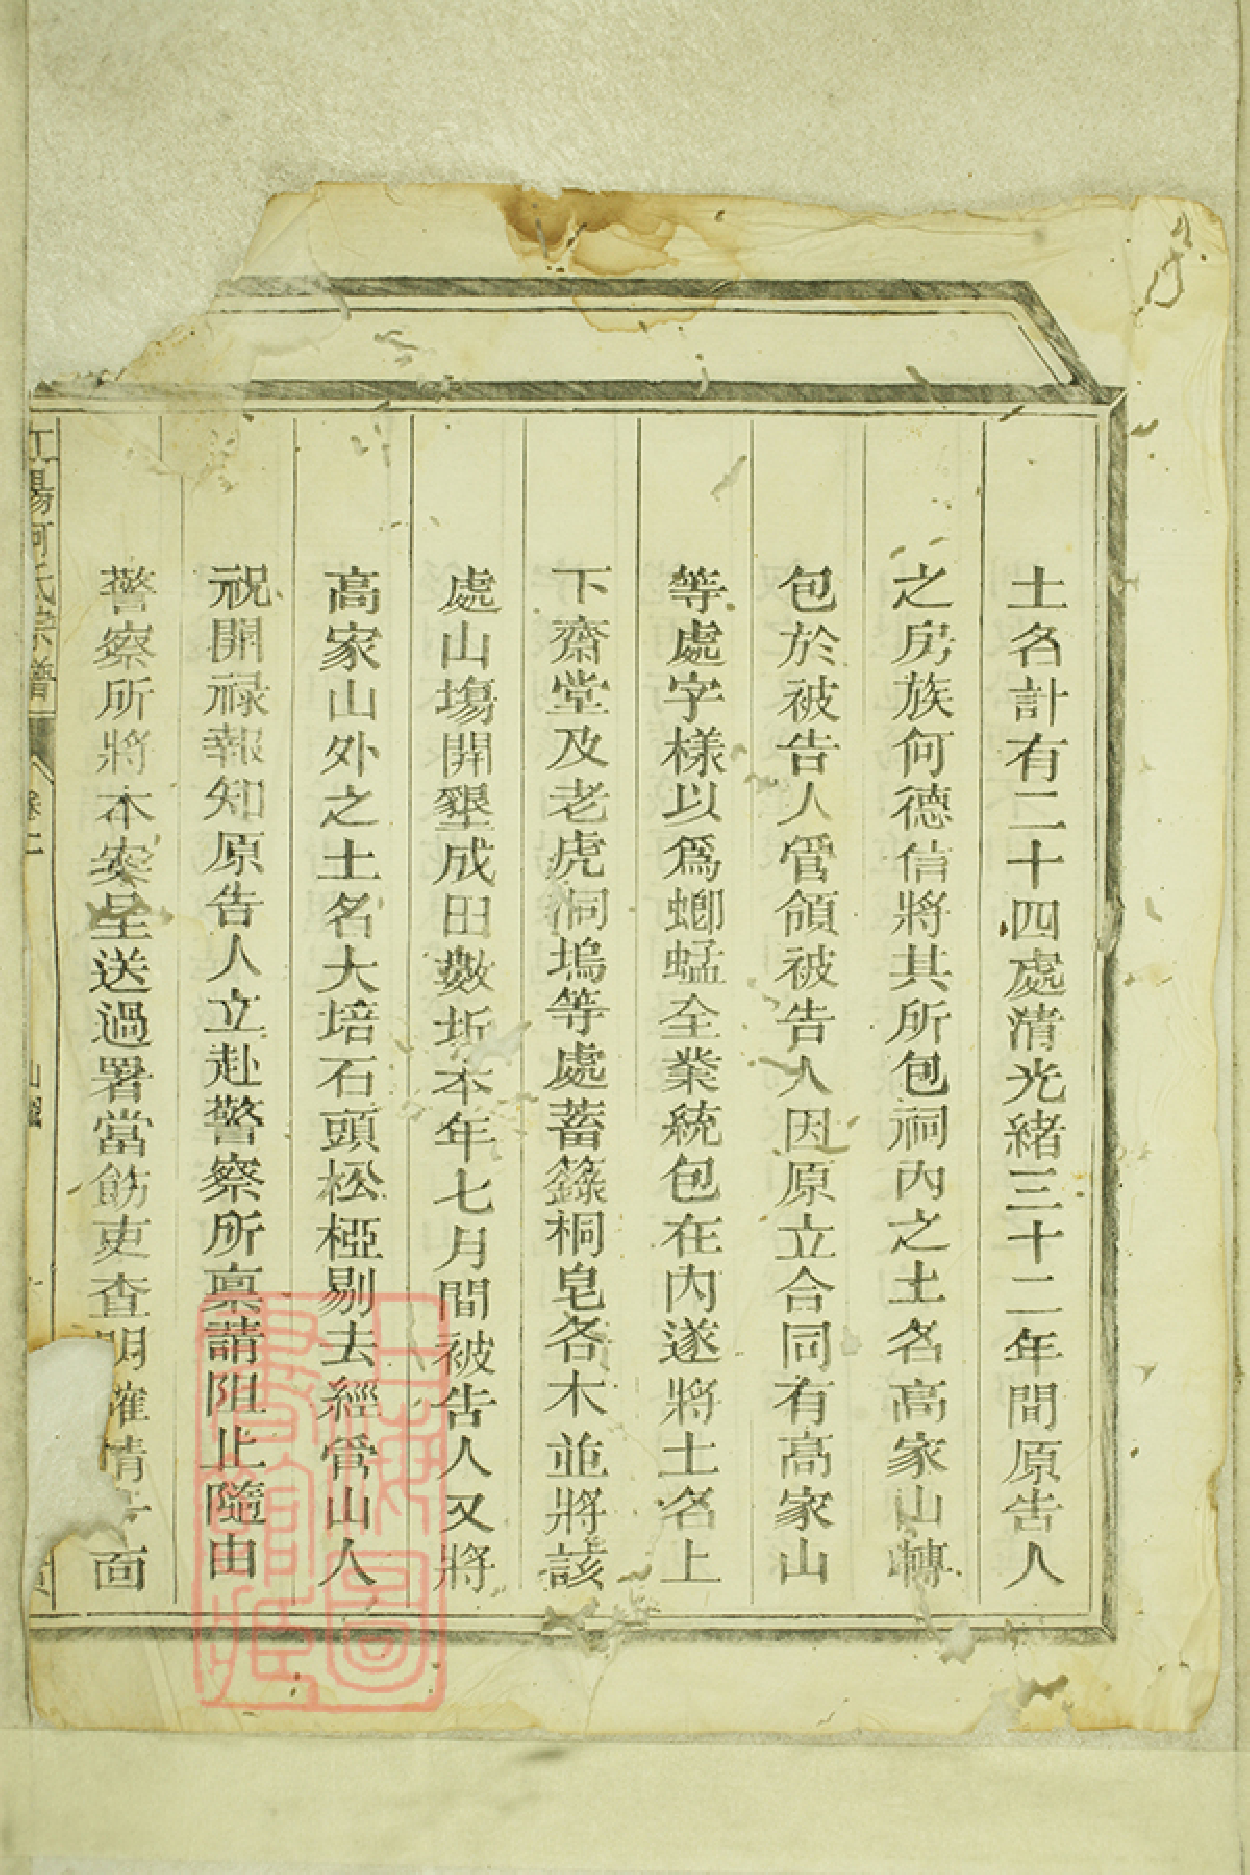 土名計有二十四處清光緒三十二年間原告人
之房族何德信將其所包祠內之土名高家山轉
包於被告人管領被告人因原立合同有高家山
等處字樣以爲螂蜢全業統包在內遂將土名上
下齋堂及老虎洞塢等處蓄籙桐皂各木並將該
處山塲開墾成田數坵本年七月間被告人又將
高家山外之土名大培石頭松椏剔去經管山人
祝開祿報知原告人立赴警察所稟請阻止隨由
警察所將本案呈送過署當飭吏查明確情 面
江陽何氏宗譜 卷二
上海圖書館藏